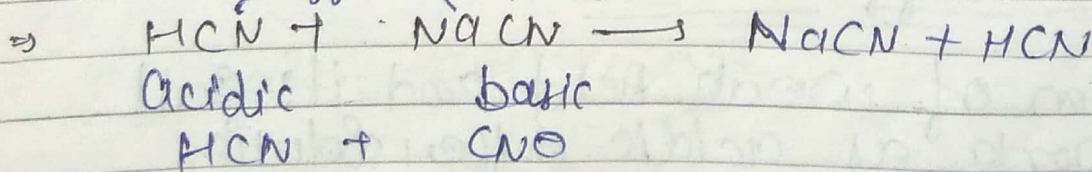 ⇒ HCN + NaCN ⟶ NaCN + HCN
acidic basic
HCN + CN⊖